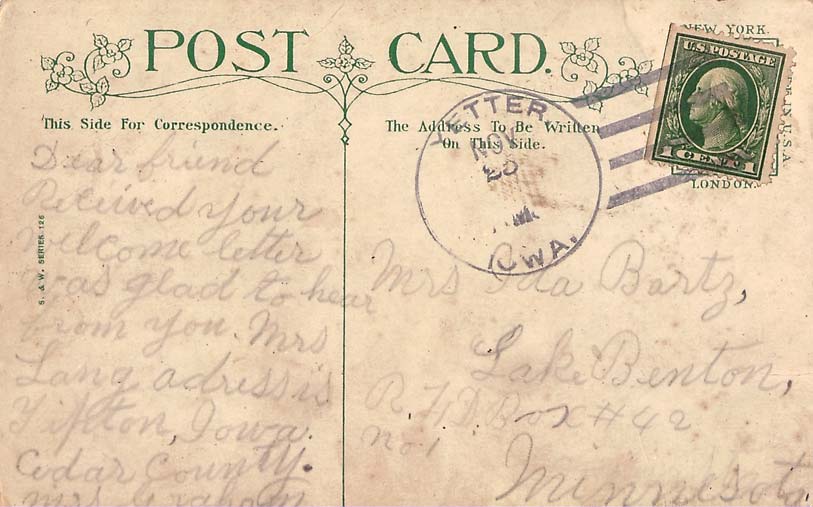 POST CARD.
NEW YORK.
U.S. POSTAGE
1 CENT
U.S.A.
LONDON.
This Side For Correspondence.
The Address To Be Written
On This Side.
YETTER,
NOV
IOWA.
S. & W. SERIES 126
Dear friend
Received your
welcome letter
was glad to hear
from you. Mrs
Lang adress is
Tipton, Iowa.
Cedar County.
Mrs
Mrs Ida Bartz,
Lake Benton,
R.F.D Box #42
no 1
Minnesota